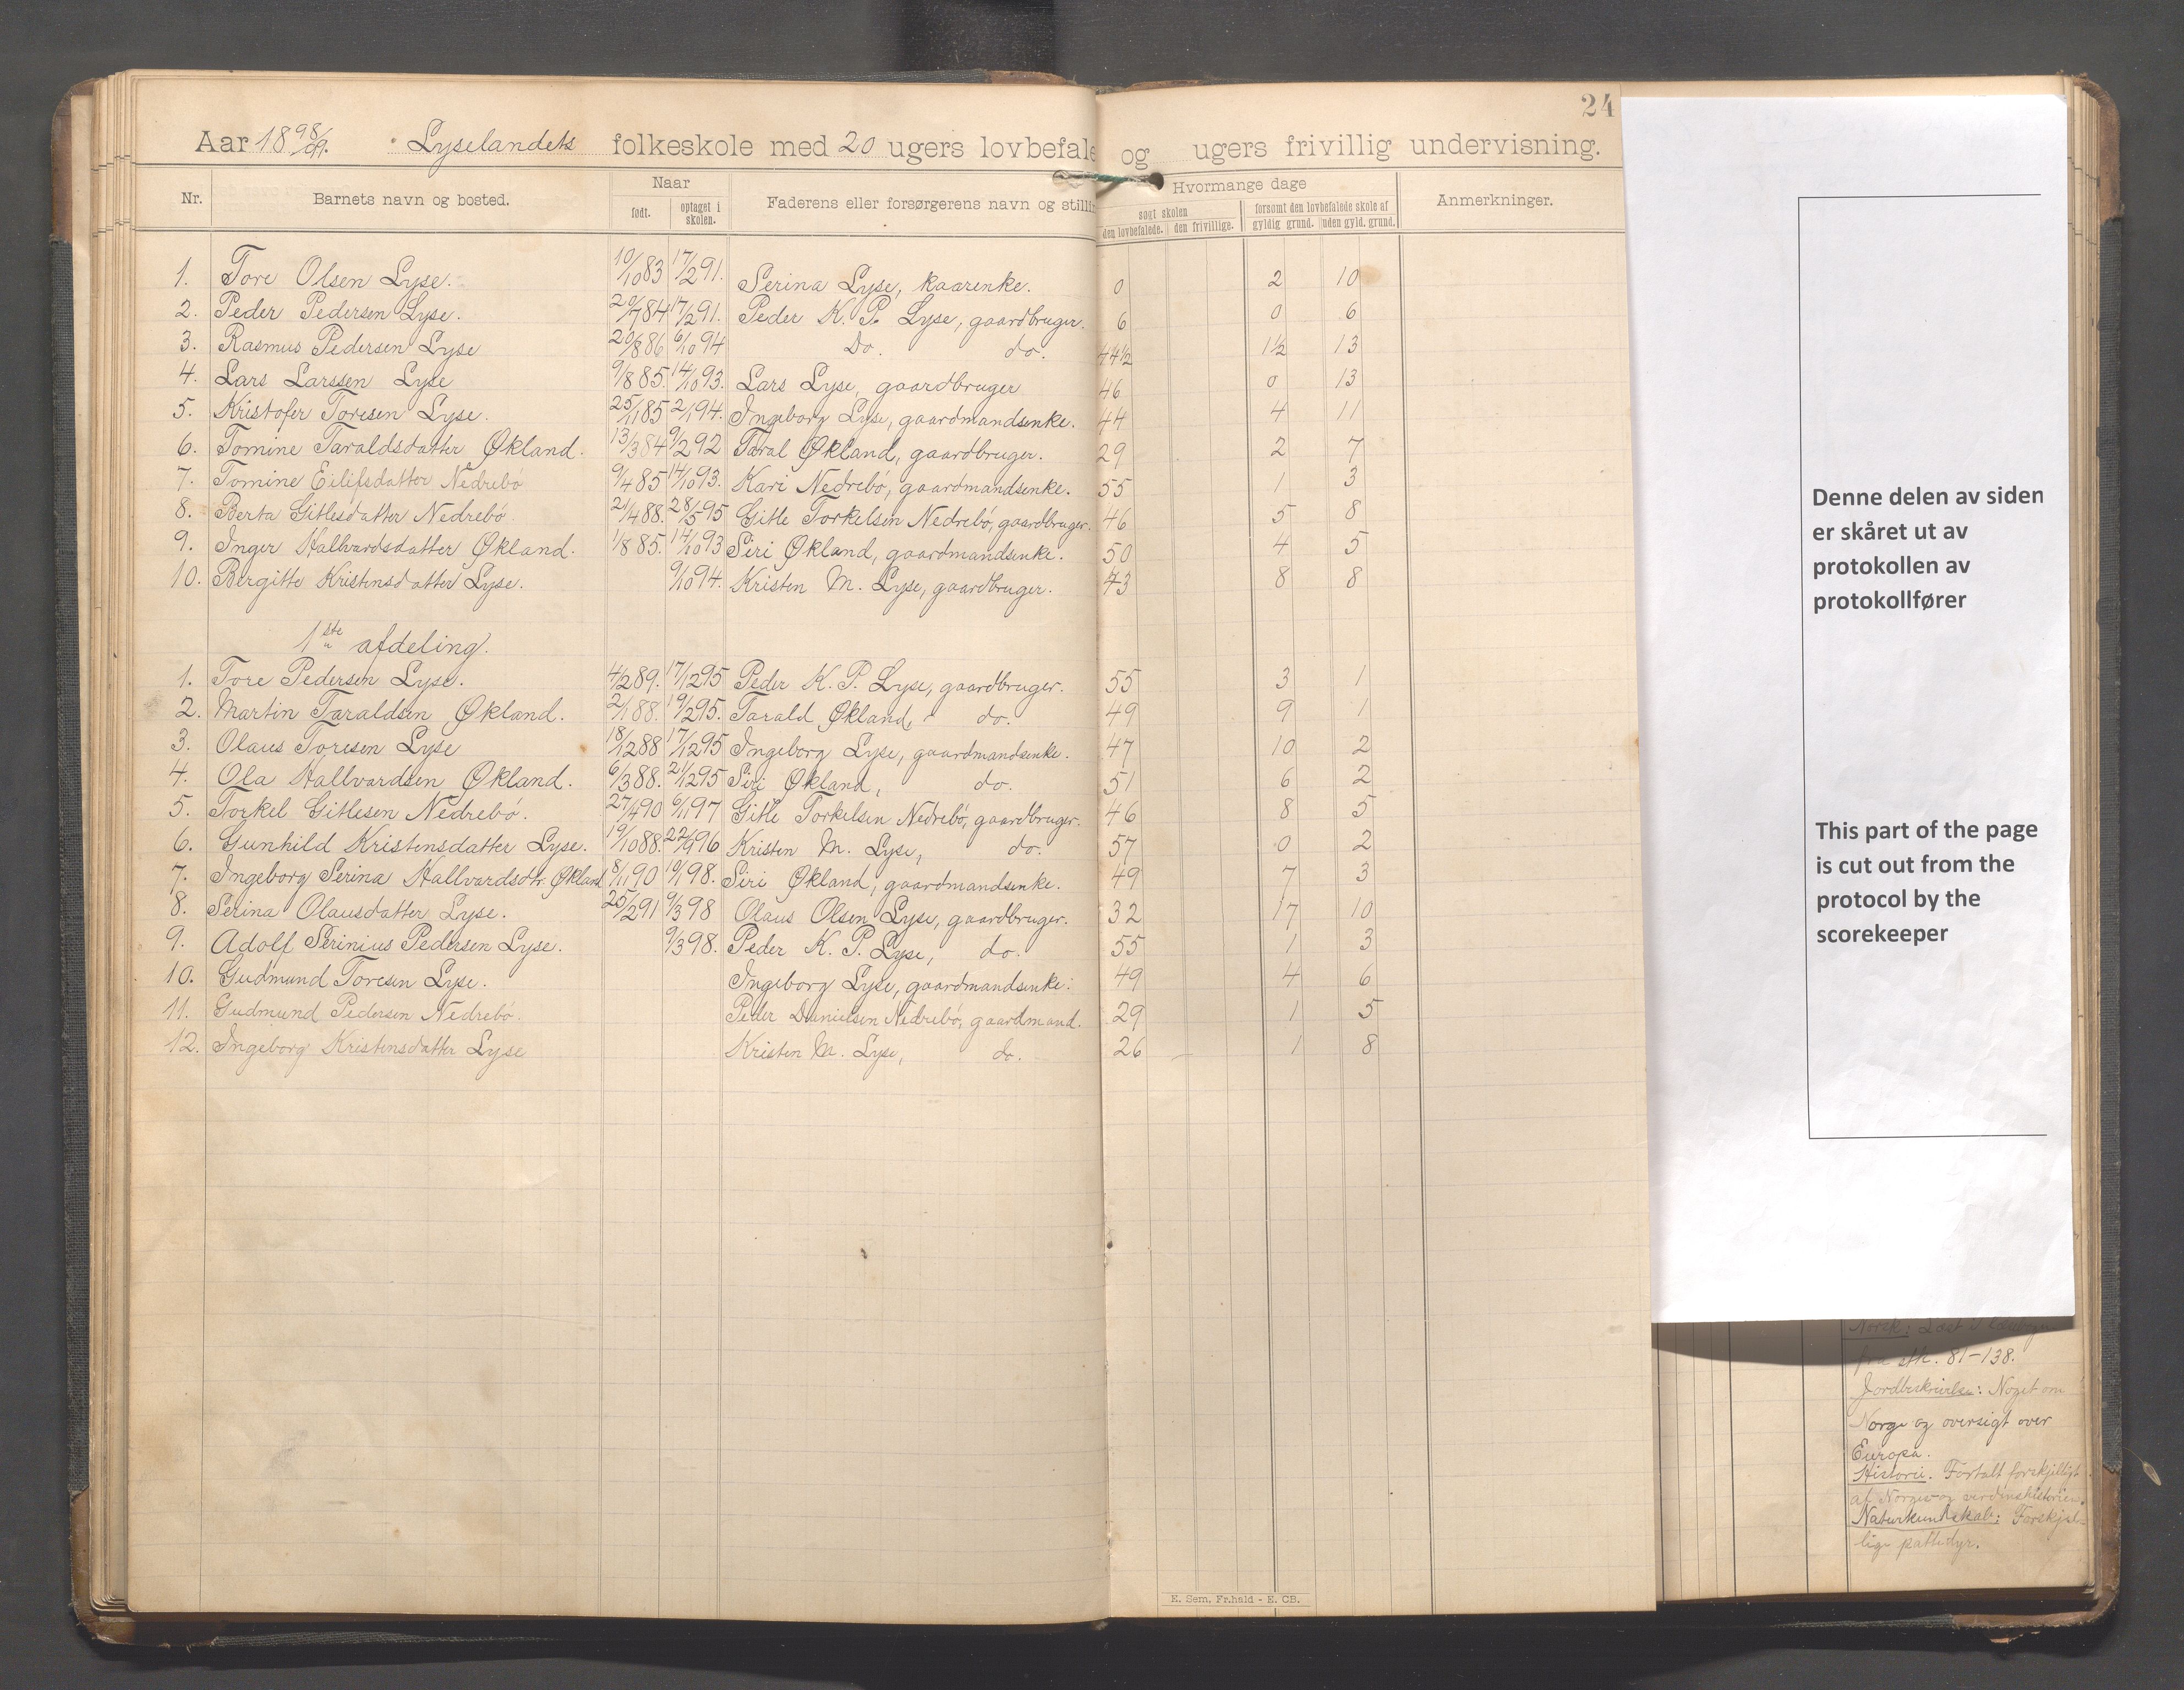 24
Aar 18 98/99. Lyselandets folkeskole med 20 ugers lovbefale og ugers frivillig undervisning.
Nr. Barnets navn og bosted. Naar Faderens eller forsørgerens navn og stillin Hvormange dage Anmerkninger.
født. optaget i skolen. søgt skolen forsømt den lovbefalede skole af
den lovbefalede. den frivillige. gyldig grund. uden gyld. grund.
1. Tore Olsen Lyse. 10/10 83 17/2 91. Serina Lyse, kaarenke. 0 2 10
2. Peder Pedersen Lyse. 20/7 84 17/2 91. Peder K. P. Lyse, gaardbruger. 6 0 6
3. Rasmus Pedersen Lyse 20/8 86 6/10 94 Do. do. 44½ 1½ 13
4. Lars Larssen Lyse 9/8 85. 14/10 93. Lars Lyse, gaardbruger 46 0 13
5. Kristofer Toresen Lyse. 25/11 85 2/1 94. Ingeborg Lyse, gaardmandsenke. 44 4 11
6. Tomine Taraldsdatter Økland. 13/3 84 9/2 92 Taral Økland, gaardbruger. 29 2 7
7. Tomine Eilifsdatter Nedrebö 9/4 85 14/10 93. Kari Nedrebö, gaardmandsenke. 55 1 3
8. Berta Gitlesdatter Nedrebö 21/4 88. 28/5 95 Gitle Torkelsen Nedrebö, gaardbruger. 46 5 8
9. Inger Hallvardsdatter Økland. 1/8 85. 14/10 93 Siri Økland, gaardmandsenke. 50 4 5
10. Birgitte Kristensdatter Lyse. 9/10 94. Kristen M. Lyse, gaardbruger. 43 8 8
1ste afdeling.
1. Tore Pedersen Lyse. 4/2 89. 17/12 95 Peder K. P. Lyse, gaardbruger. 55 3 1
2. Martin Taraldsen Økland. 2/1 88. 19/2 95. Tarald Økland, do. 49 9 1
3. Olaus Toresen Lyse 18/12 88 17/12 95 Ingeborg Lyse, gaardmandsenke. 47 10 2
4. Ola Hallvardsen Økland. 6/3 88. 21/12 95 Siri Økland, do. 51 6 2
5. Torkel Gitlesen Nedrebö. 27/4 90 6/11 97 Gitle Torkelsen Nedrebö, gaardbruger. 46 8 5
6. Gunhild Kristensdatter Lyse. 19/10 88. 22/9 96 Kristen M. Lyse, do. 57 0 2
7. Ingeborg Serina Hallvardsdtr. Økland 8/11 90 10/1 98. Siri Økland, gaardmandsenke. 49 7 3
8. Serina Olausdatter Lyse. 25/2 91 9/3 98 Olaus Olsen Lyse, gaardbruger. 32 17 10
9. Adolf Serinius Pedersen Lyse. 9/3 98. Peder K. P. Lyse, do. 55 1 3
10. Gudmund Toresen Lyse. Ingeborg Lyse, gaardmandsenke. 49 4 6
11. Gudmund Pedersen Nedrebö. Peder Danielsen Nedrebö, gaardmand. 29 1 5
12. Ingeborg Kristensdatter Lyse Kristen M. Lyse, do. 26 1 8
E. Sem, Fr.hald - E. CB.
Denne delen av siden
er skåret ut av
protokollen av
protokollfører
This part of the page
is cut out from the
protocol by the
scorekeeper
Norsk: Læst i
fra stk. 81-138.
Jordbeskrivelse: Noget om
Norge og oversigt over
Europa.
Historie. Fortalt forskjelligt
af Norges og verdenshistorien.
Naturkundskab: Forskjel-
lige pattedyr.